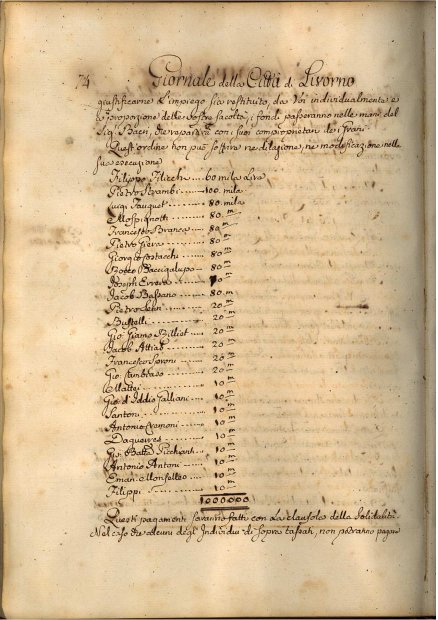 74 Giornale della Città di Livorno
giustificarne l'impiego sia restituito, da Voi individualmente e
proporzione delle Vostre facoltà, i fondi passeranno nelle mani del
Sig. Bacri, che repartirà con i suoi comproprietari de i Grani
Quest'ordine non può soffrire ne dilazione, ne modificazione nelle
sua esecuzione
Filippo Filicchi 60 mila Lire
Pietro Strambi 100. mila
Luigi Fauquet 80. mila
Mospignotti 80 m
Francesco Branca 80 m
Pietro Gera 80 m
Giorgio Ostacchi 80 m
Botto Baccigalupo 80 m
Joseph Errera m
Jacob Bassano 80 m
Pietro 20 m
Bustelli 20 m
Gio: Giamo Billiet 20 m
Jacob Attias 20 m
Francesco Soroni 20 m
Gio: Sambaso 20 m
Mattei 10 m
Gio: d'Iddio Galliani 10 m
Santoni 10 m
Antonio Cremoni 10 m
Daqueires 10 m
Gio: Batta 10 m
Antonio Antoni 10 m
Eman. Monfalleo 10 m
Filippi 10 m
1000000
Questi pagamenti saranno fatti con La clausola della Solidarità
Nel caso che alcuni degl'Individui di sopra tassati, non potranno pagare